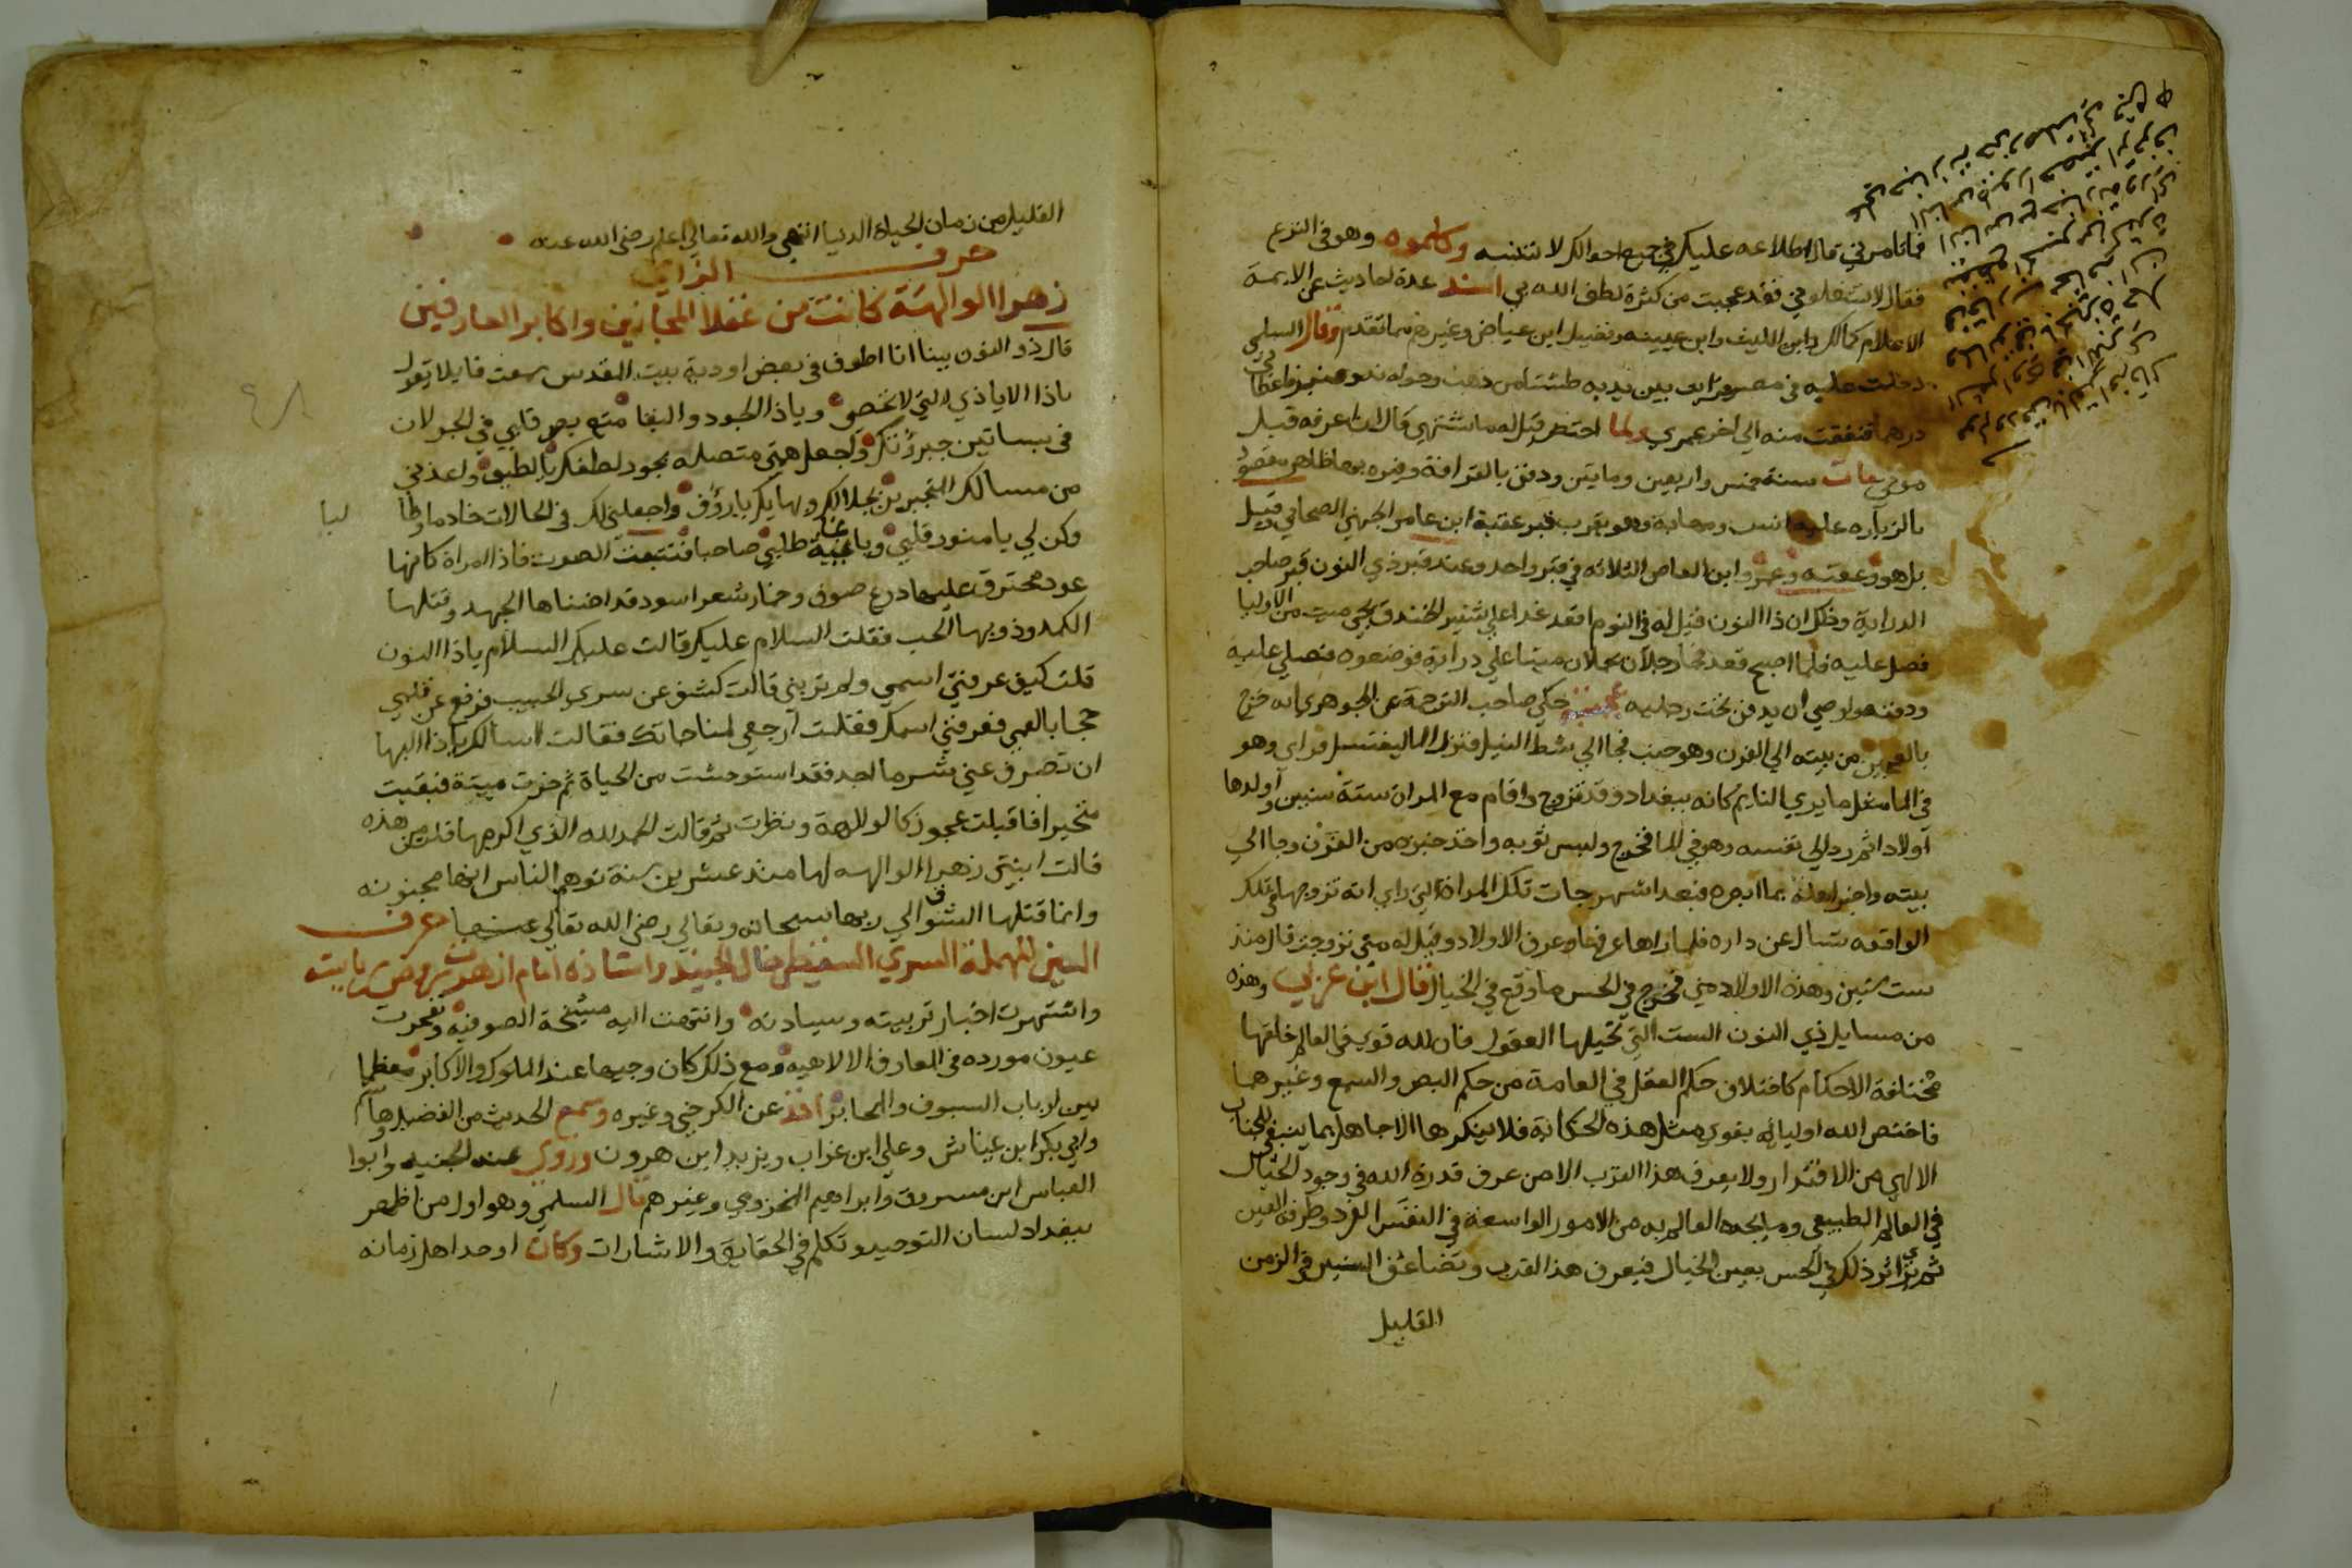 فما تامرني قال اطلاعه عليكم في جميع احوالكم لا تنسه وكلموه وهو في النزع
فقال لا تشغلوني فقد عجبت من كثرة لطف الله بي اسند عدة احاديث عن الايمة
الاعلام كمالك وابن الليث وابن عيينه وفضيل ابن عياض وغيرهم مما تقدم وقال السلمي
دخلت عليه في مصر فرايت بين يديه طشتا من ذهب وحوله ند وعنبر فاعطاني
درهما فنفقت منه الي اخر عمري ولما احتضر قيل له ما تشتهي قال ان اعرفه قبل
موتي مات سنة خمس واربعين ومايتين ودفن بالقرافة وقبره بها ظاهر مقصود
بالزياره عليه انس ومهابة وهو بقرب قبر عقبة ابن عامر الجهني الصحابي وقيل
بل هو وعقبه وعمرو ابن العاص الثلاثه في قبر واحد وعند قبر ذي النون قبر صاحب
الدراية وذلك ان ذا النون قيل له في النوم اقعد غدا علي شفير الخندق يجي ميت من الاوليا
فصل عليه فلما اصبح قعد فجا رجلان يحملان ميتا علي دراية فوضعوه فصلي عليه
ودفنه واوصي ان يدفن تحت رحليه حكي صاحب الترجمة عن الجوهري انه خرج
بالعجين من بيته الي الفرن وهو جنب فجا الي شط النيل فنزل الما ليغتسل فراي وهو
في الما مثل ما يري النايم كانه ببغداد وقد تزوج واقام مع المراة ستة سنين واولدها
اولادا ثم رد الي نفسه وهو في الما فخرج ولبس ثوبه واخذ خبزه من الفرن وجا الي
بيته واخبر اهله بما ابصره فبعد اشهر جات تلك المراة التي راي انه تزوجها في تلك
الواقعه تسال عن داره فلما راها عرفها وعرف الاولاد وقيل له متي تزوجت قال منذ
ست سنين وهذه الاولاد مني فخرج في الحس ما وقع في الخيال قال ابن عربي وهذه
من مسايل ذي النون الست التي تحيلها العقول فان لله قوي في العالم خلقها
مختلفة الاحكام كاختلاف حكم العقل في العامة من حكم البصر والسمع وغيرهما
فاختص الله اوليائه بقوي مثل هذه الحكاية فلا ينكرها الا جاهل بما ينبغي للجناب
الالهي من الاقتدار ولا يعرف هذا القرب الا من عرف قدرة الله في وجود الخيال
في العالم الطبيعي وما يجده العالم به من الامور الواسعة في النفس الفرد وطرفه العين
ثم يري اثر ذلك في الحس بعين الخيال فيعرف هذا القرب وتضاعف السنين في الزمن
القليل
القليل من زمان الحياة الدنيا انتهي والله تعالي اعلم رضي الله عنه
حرف الزاي
زهرا الوالهة كانت من عقلا المجانين واكابر العارفين
قال ذو النون بينا انا اطوف في بعض اودية بيت المقدس سمعت قايلا يقول
ياذا الاياذي التي لا تحصي وياذا الجود والبقا متع بصر قلبي في الجولان
في بساتين جبروتك واجعل همتي متصله بجود لطفك يا لطيف واعذني
من مسالك المتجبرين بجلالك وبهايك يا رؤف واجعلني لك في الحالات خادما وطالبا
وكن لي يا منور قلبي ويا غاية طلبي صاحبا فتتبعت الصوت فاذا امراة كانها
عود محترق عليها درع صوف وخمار شعر اسود قد اضناها الجهد وقتلها
الكمد وذوبها الحب فقلت السلام عليك قالت عليك السلام ياذا النون
قلت كيف عرفتي اسمي ولم تريني قالت كشف عن سري الحبيب فرفع عن قلبي
حجاب العمي فعرفني اسمك فقلت ارجعي لمناجاتك فقالت اسالك ياذا البها
ان تصرف عني شر ما اجد فقد استوحشت من الحياة ثم خرت ميتة فبقيت
متحيرا فاقبلت عجوز كالوالهة ونظرت ثم قالت الحمد لله الذي اكرمها قلت من هذه
قالت ابنتي زهرا الوالهه لها منذ عشرين سنة توهم الناس انها مجنونه
وانما قتلها الشوق الي ربها سبحانه وتعالي رضي الله تعالي عنها حرف
السين المهملة السري السقطي خال الجنيد واستاذه امام ازهرت روض رياسته
واشتهرت اخبار تربيته وسيادته وانتهت اليه مشيخة الصوفيه وتفجرت
عيون مورده في المعارف الالاهيه ومع ذلك كان وجيها عند الملوك والاكابر معظما
بين ارباب السيوف والمحابر اخذ عن الكرخي وغيره وسمع الحديث من الفضيل وهاشم
وابي بكر ابن عياش وعلي ابن غراب ويزيد ابن هرون وروي عنه الجنيد وابوا
العباس ابن مسروق وابراهيم المخزومي وغيرهم قال السلمي وهو اول من اظهر
ببغداد لسان التوحيد وتكلم في الحقايق والاشارات وكان اوحد اهل زمانه